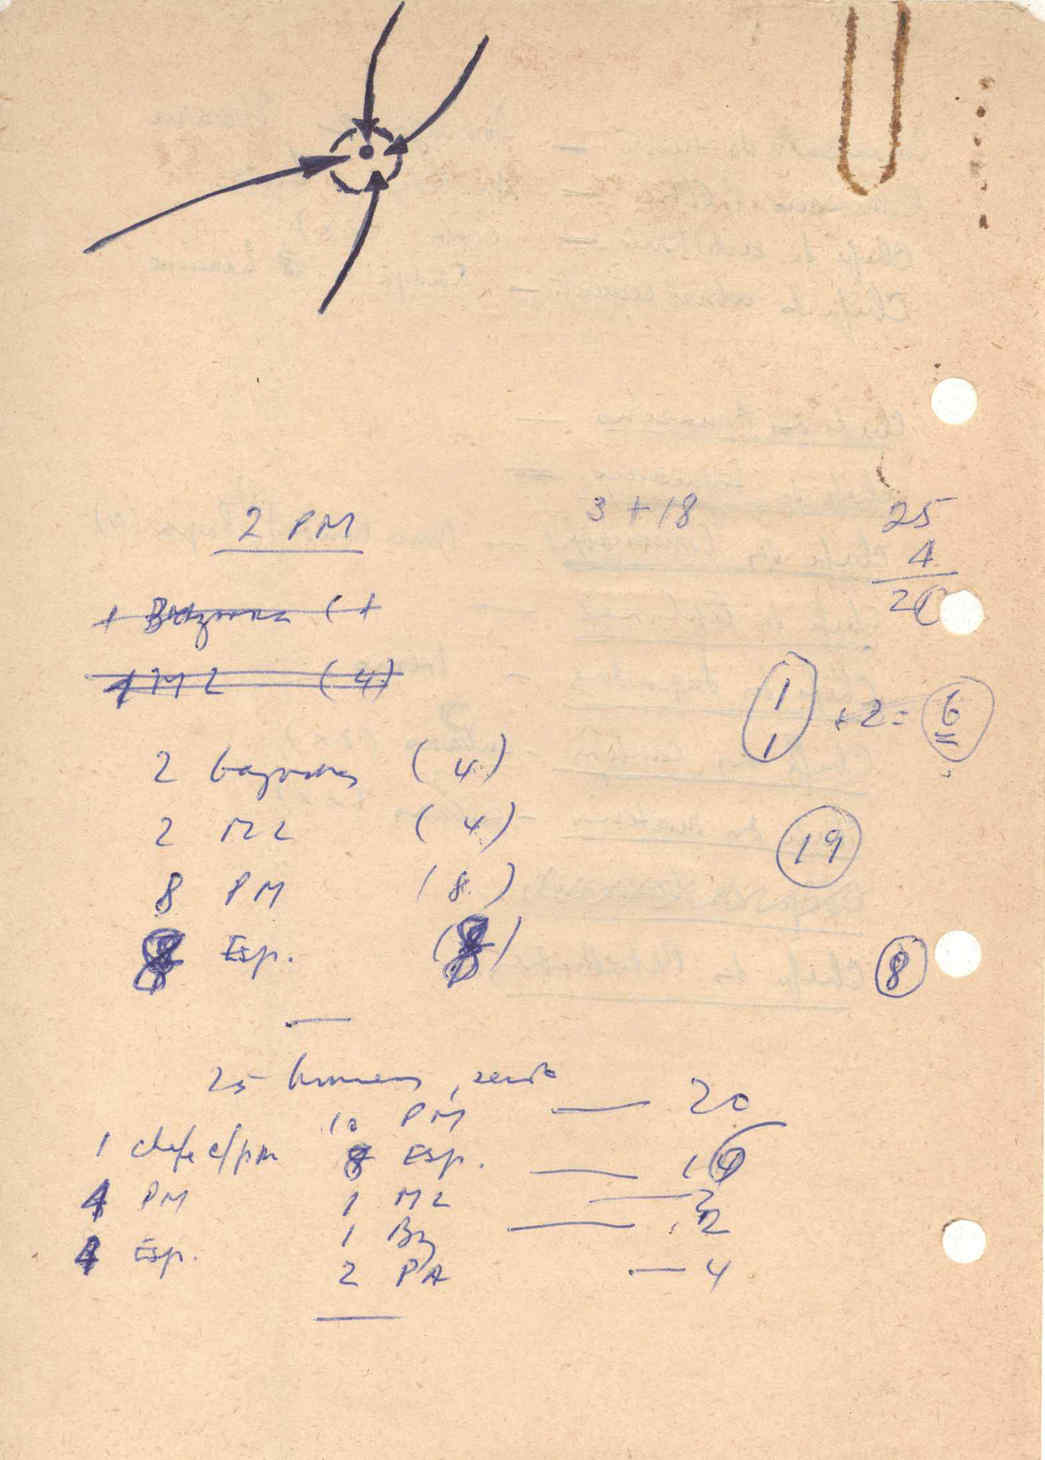 2 PM
3 + 18
25
4
+ Bazooka ( +
1 ML (4)
1
1 + 2 = 6
2 bazookas (4)
2 ML (4)
19
8 PM (8)
8 Esp. (8)
8
25 homens, sendo
10 PM — 20
1 chefe c/pm 8 Esp. —
4 PM 1 ML —
4 Esp. 1 Bz — 2
2 PA — 4